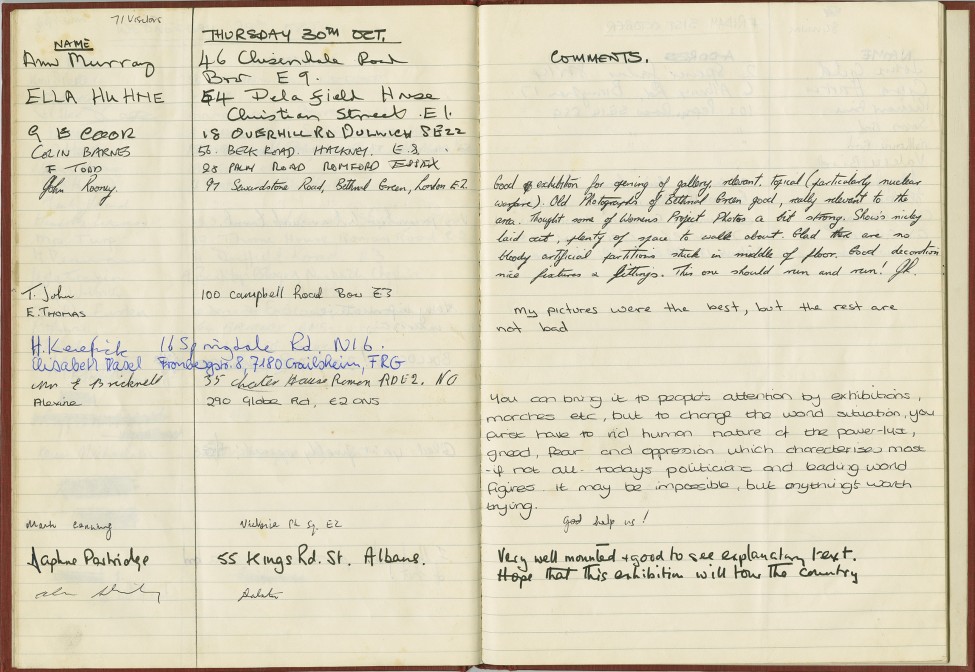 71 Visitors
NAME THURSDAY 30TH OCT. COMMENTS.
Ann Murray 46 Chisenhale Road
Bow E9.
ELLA HUHNE 54 Delafield House
Christian Street E1.
18 OVERHILL RD DULWICH SE22
COLIN BARNES 56. BECK ROAD. HACKNEY. E.8.
F TODD 28 PALM ROAD ROMFORD ESSEX
John Rooney. 97 Sewardstone Road, Bethnal Green, London E2.
Good exhibition for opening of gallery, relevant, topical (particularly nuclear
warfare). Old Photographs of Bethnal Green good, really relevant to the
area. Thought some of Womens Project Photos a bit strong. Show's nicely
laid out, plenty of space to walk about. Glad there are no
bloody artificial partitions stuck in middle of floor. Good decoration
nice features & fittings. This one should run and run! JR.
T. John 100 Campbell Road Bow E3
E. THOMAS
My pictures were the best, but the rest are
not bad
H. Kerefick 16 Springdale Rd, N16.
Elisabeth 8, 7180 Crailsheim, FRG
Mrs E Bricknell 35 House Roman RD E2. NO
Alexine 290 Globe Rd, E2 0NS
You can bring it to people's attention by exhibitions,
marches etc, but to change the world situation, you
first have to rid human nature of the power-lust,
greed, fear and oppression which characterises most
-if not all- todays politicians and leading world
figures. It may be impossible, but anything's worth
trying.
Mark Victoria Pk Sq. E2 God help us!
Daphne Partridge 55 Kings Rd. St. Albans.
Very well mounted + good to see explanatory text.
Hope that this exhibition will tour the country